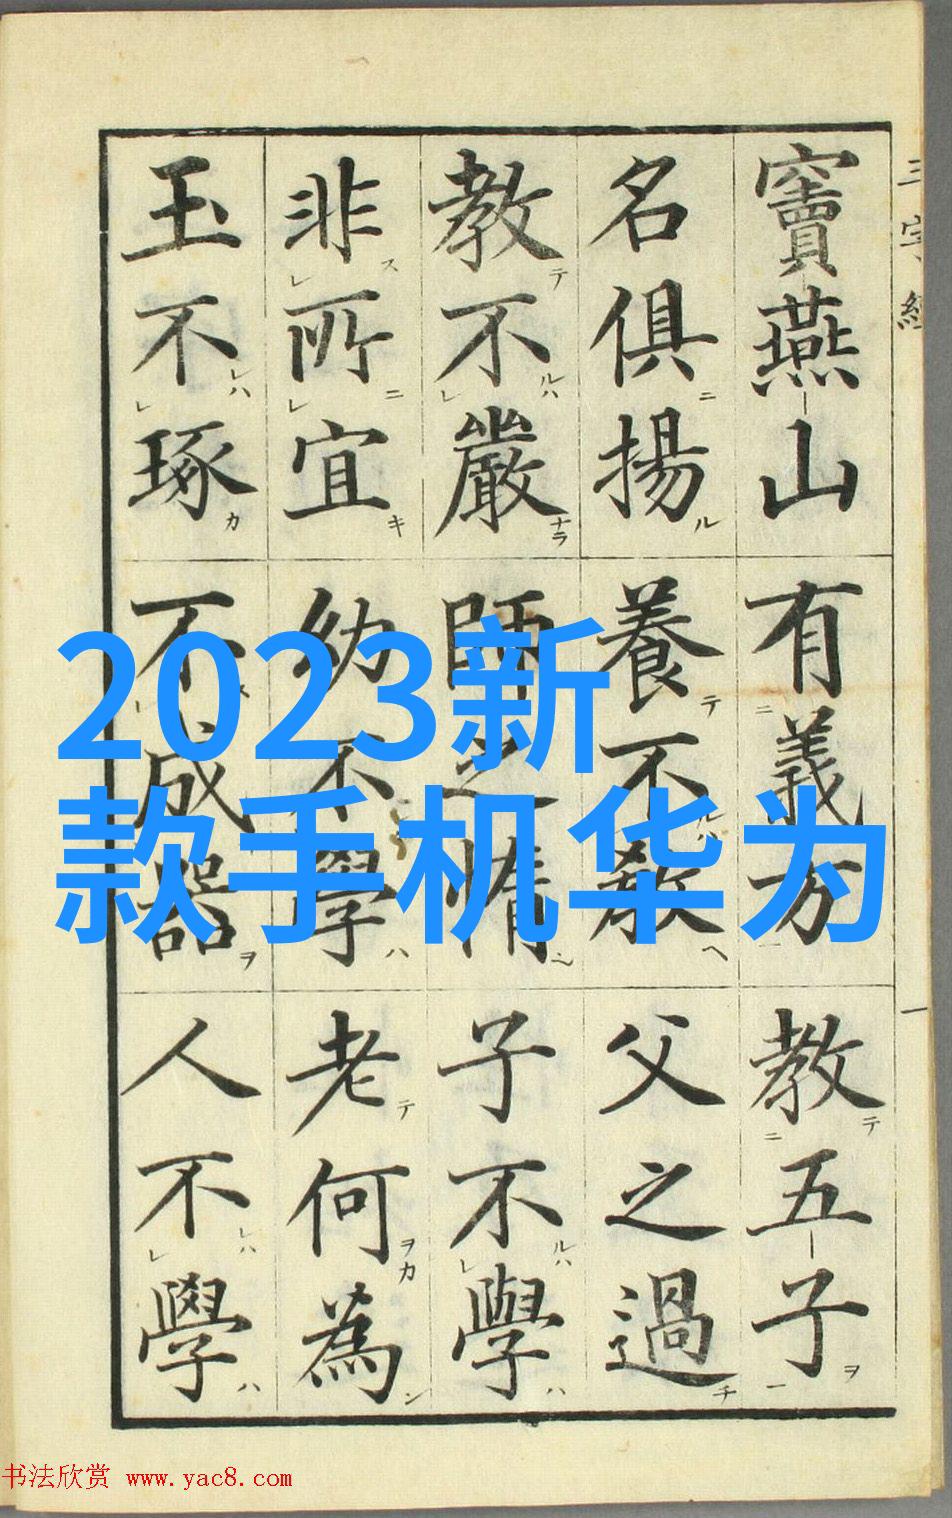 三字經
竇燕山有義方教五子
名俱揚養不教父之過
教不嚴師之惰子不學
非所宜幼不學老何為
玉不琢不成器人不學
一
2023新
款手机华为
书法欣赏 www.yac8.com